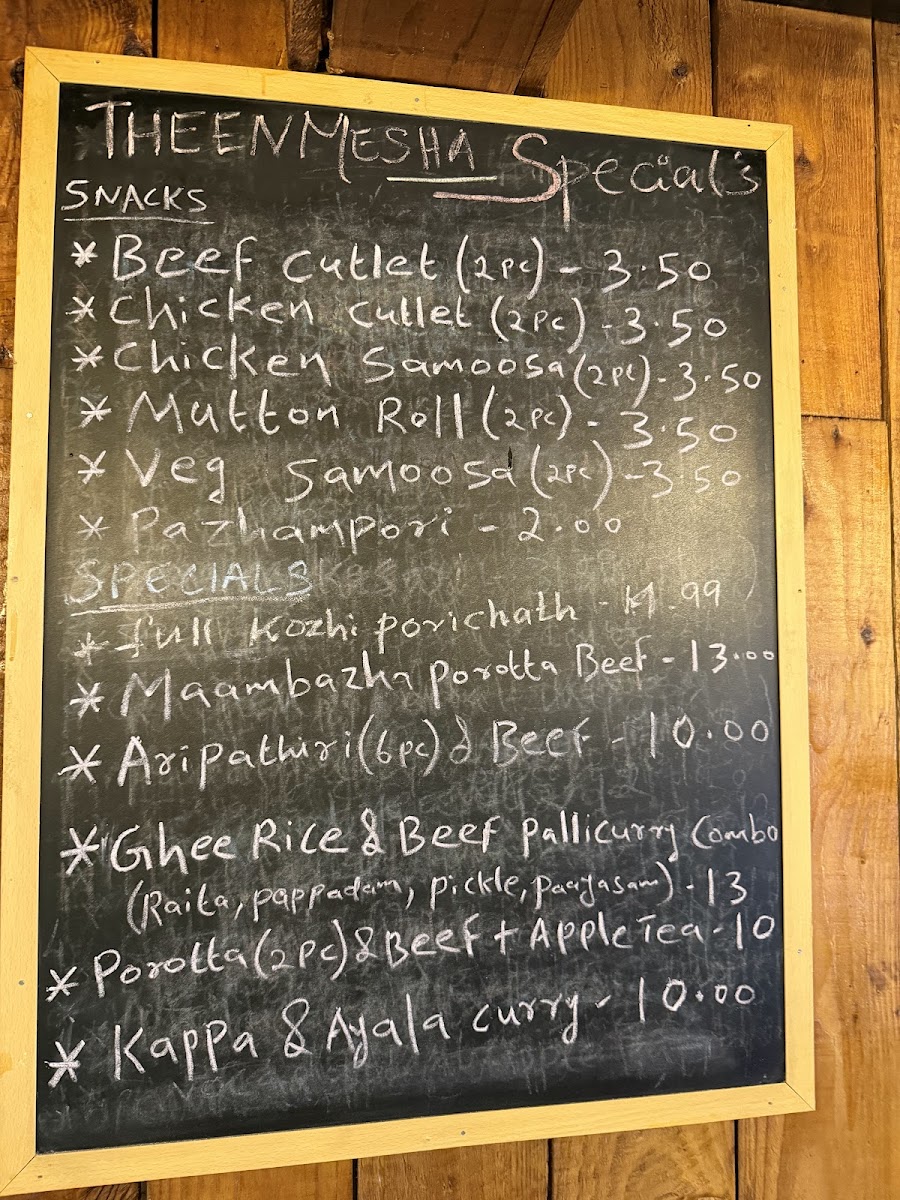 THEENMESHA Special's
SNACKS
* Beef Cutlet (2pc) - 3.50
* Chicken Cutlet (2pc) - 3.50
* Chicken Samoosa (2pc) - 3.50
* Mutton Roll (2pc) - 3.50
* Veg Samoosa (2pc) - 3.50
* Pazhampori - 2.00
SPECIALS
* full Kozhi porichath - .99
* Maambazha porotta Beef - 13.00
* Aripathiri (6pc) & Beef - 10.00
* Ghee Rice & Beef pallicurry Combo
(Raita, pappadam, pickle, paayasam) - 13
* Porotta (2pc) & Beef + Apple Tea - 10
* Kappa & Ayala curry - 10.00